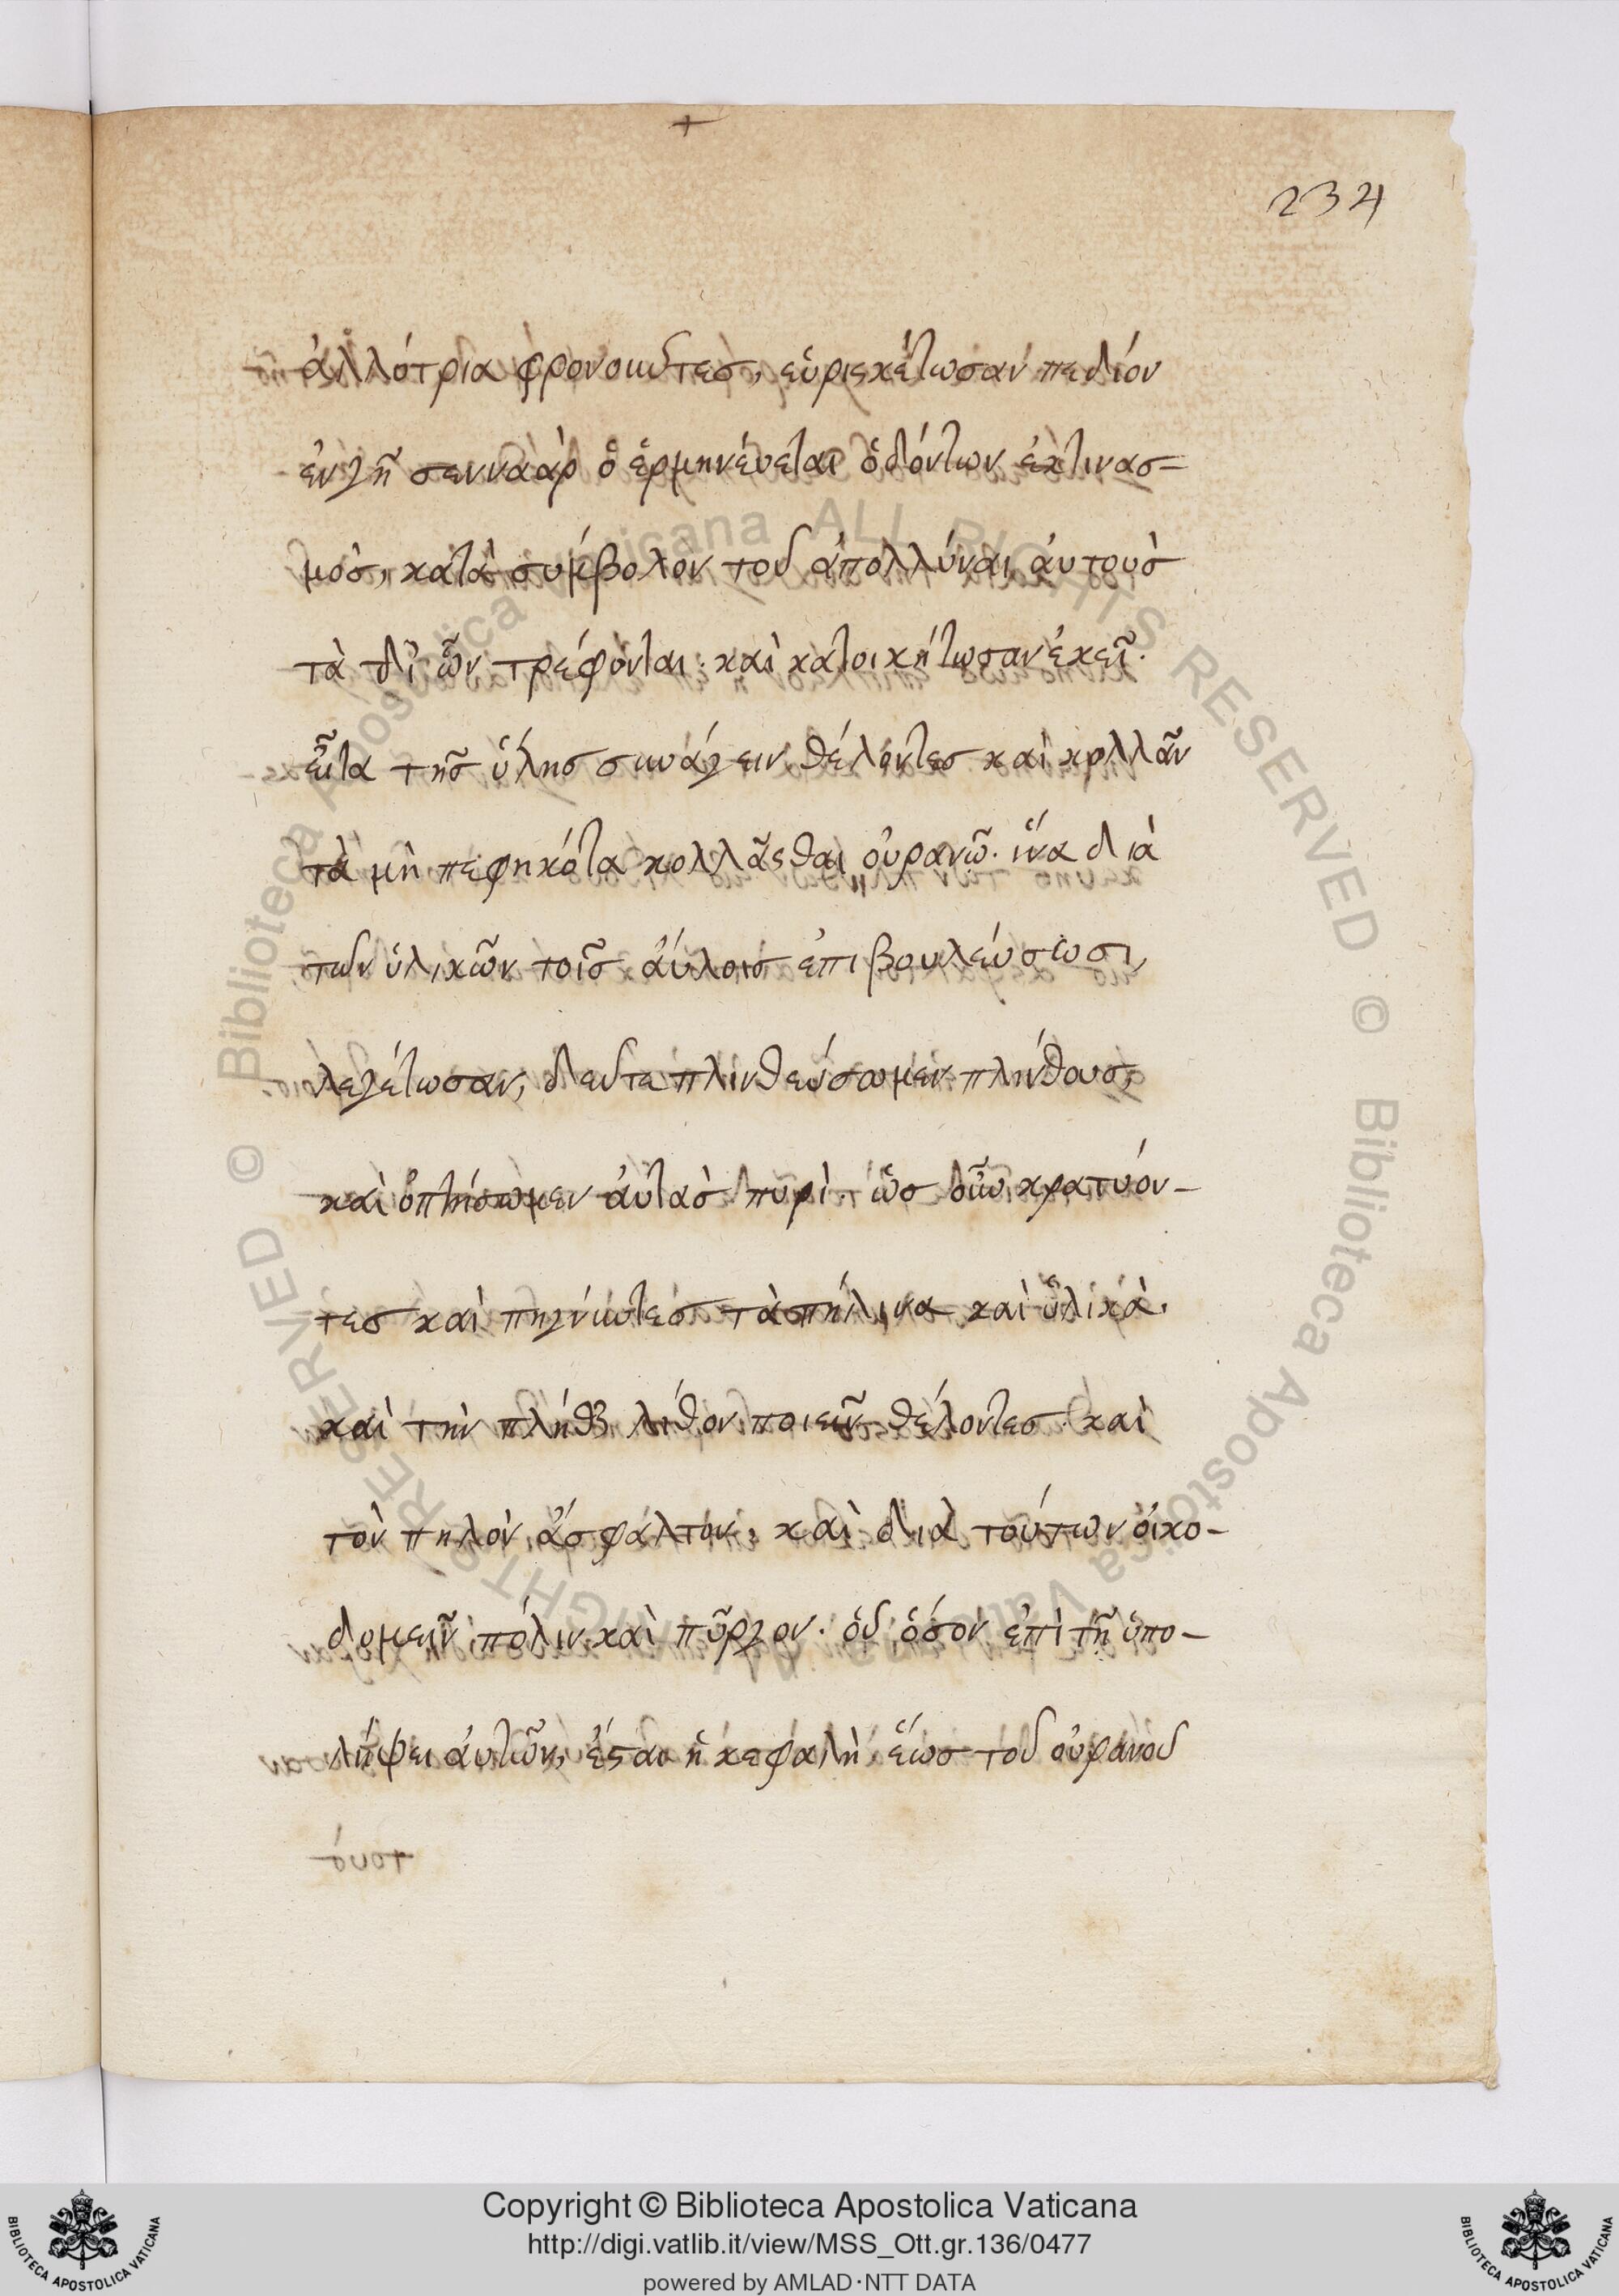 +
234
ἀλλότρια φρονοῦντες, εὑρισκέτωσαν πεδίον
ἐν γῇ σενναὰρ ὃ ἑρμηνέυεται ὀδόντων ἐκτινασ-
μὸς, κατὰ σύμβολον τοῦ ἀπολλύναι ἀυτοὺς
τὰ δι' ὧν τρέφονται· καὶ κατοικήτωσαν ἐκεῖ·
εἶτα τῆς ὕλης συνάγειν θέλοντες καὶ κολλᾶν
τὰ μὴ πεφηκότα κολλᾶσθαι οὐρανῷ· ἵνα διὰ
τῶν ὑλικῶν τοῖς ἀύλοις ἐπιβουλεύσωσι,
λεγέτωσαν, δεῦτε πλινθεύσωμεν πλήνθους,
καὶ ὀπτήσωμεν ἀυτὰς πυρὶ· ὡς οὖν κρατύον-
τες καὶ πηγνῦντες τὰ πήλινα καὶ ὑλικὰ.
καὶ τὴν πλήθον λίθον ποιεῖν θέλοντες· καὶ
τὸν πηλὸν ἄσφαλτον, καὶ διὰ τούτων οἰκο-
δομεῖν πόλιν καὶ πῦργον· οὗ ὅσον ἐπὶ τῇ ὑπο-
λήψει ἀυτῶν, ἔσται ἡ κεφαλὴ ἕως τοῦ οὐρανοῦ
Copyright © Biblioteca Apostolica Vaticana
http://digi.vatlib.it/view/MSS_Ott.gr.136/0477
powered by AMLAD·NTT DATA
BIBLIOTECA APOSTOLICA VATICANA
BIBLIOTECA APOSTOLICA VATICANA
© Biblioteca Apostolica Vaticana ALL RIGHTS RESERVED © Biblioteca Apostolica Vaticana ALL RIGHTS RESERVED